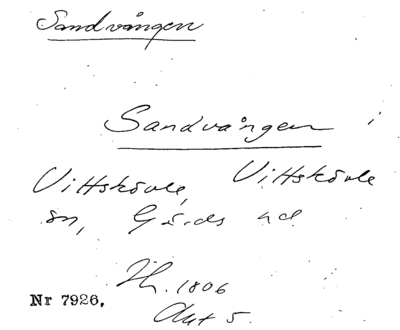 Sandvången
Sandvången i
Vittskövle, Vittskövle
sn, Gärds hd
Jh. 1806
Akt 5.
Nr 7926.